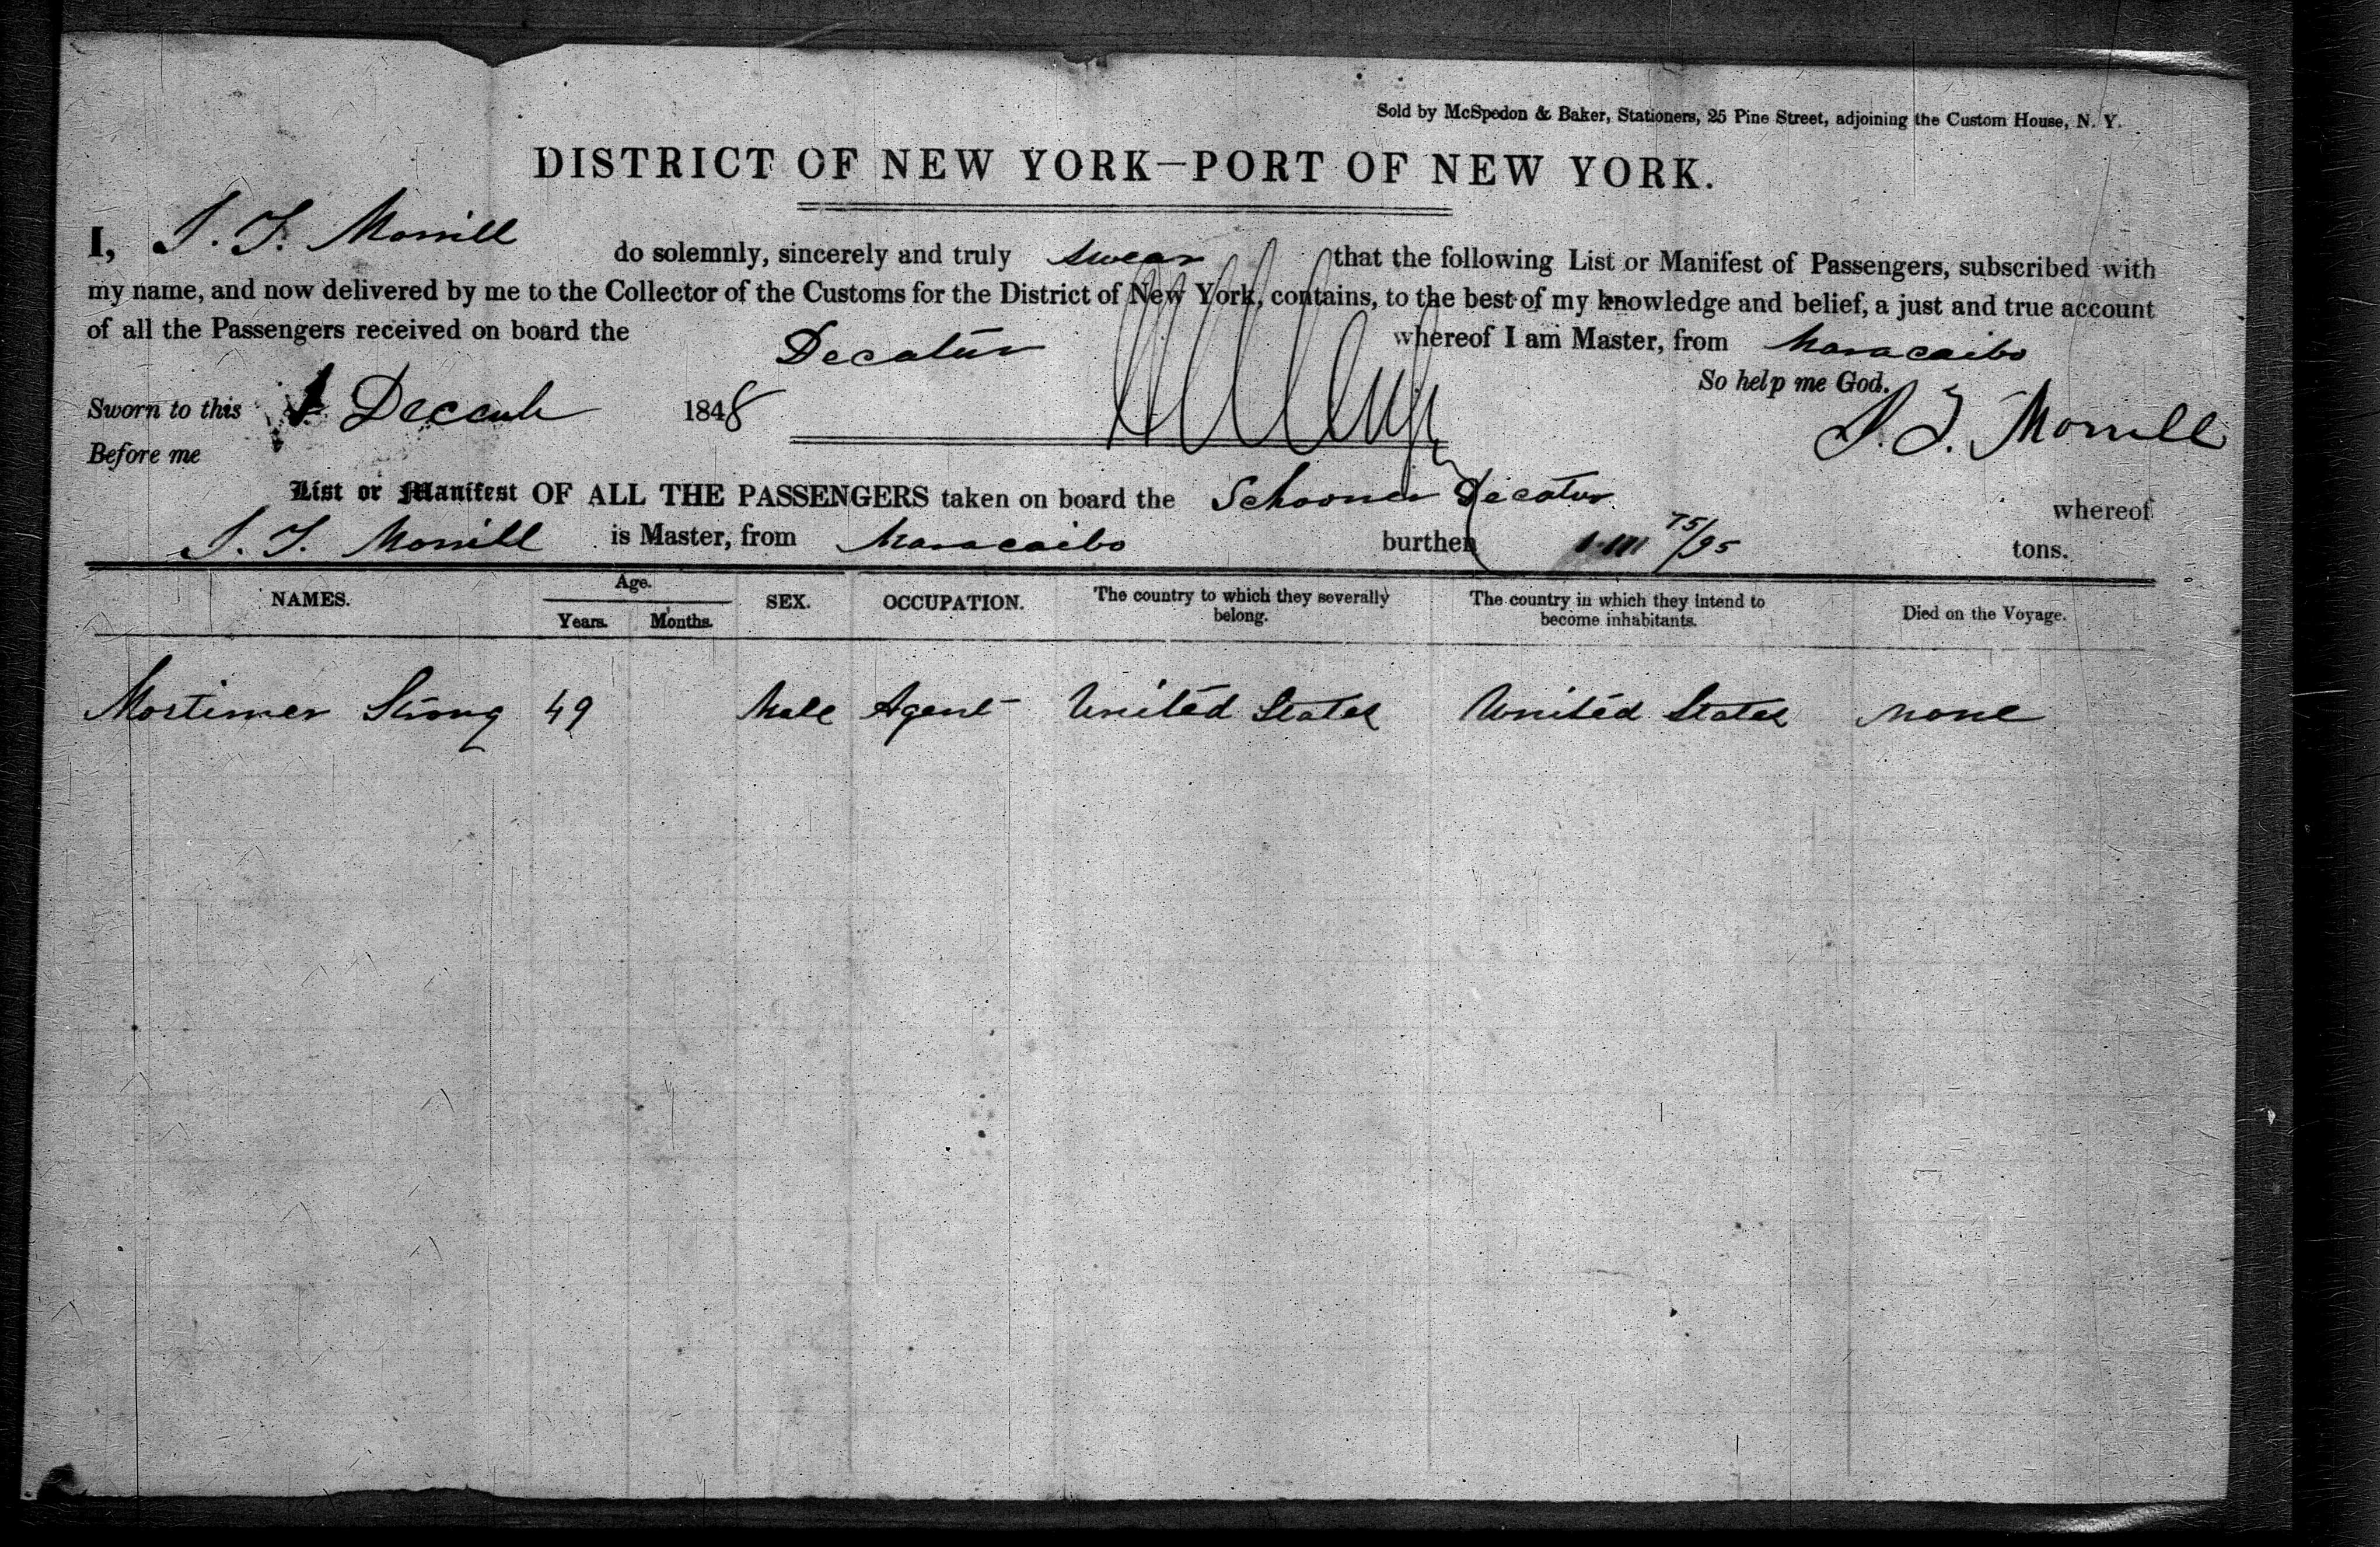 Sold by McSpedon & Baker, Stationers, 25 Pine Street, adjoining the Custom House, N. Y.
DISTRICT OF NEW YORK—PORT OF NEW YORK.
I, J. F. Morrill do solemnly, sincerely and truly swear that the following List or Manifest of Passengers, subscribed with
my name, and now delivered by me to the Collector of the Customs for the District of New York, contains, to the best of my knowledge and belief, a just and true account
of all the Passengers received on board the Decatur whereof I am Master, from Maracaibo
So help me God.
Sworn to this 1 Decemb 1848 J. F. Morrill
Before me
List or Manifest OF ALL THE PASSENGERS taken on board the Schooner Decatur whereof
J. F. Morrill is Master, from Maracaibo burthen 75/95 tons.
NAMES. Age. Years. Months. SEX. OCCUPATION. The country to which they severally belong. The country in which they intend to become inhabitants. Died on the Voyage.
Mortimer Strong 49 Male Agent United States United States None